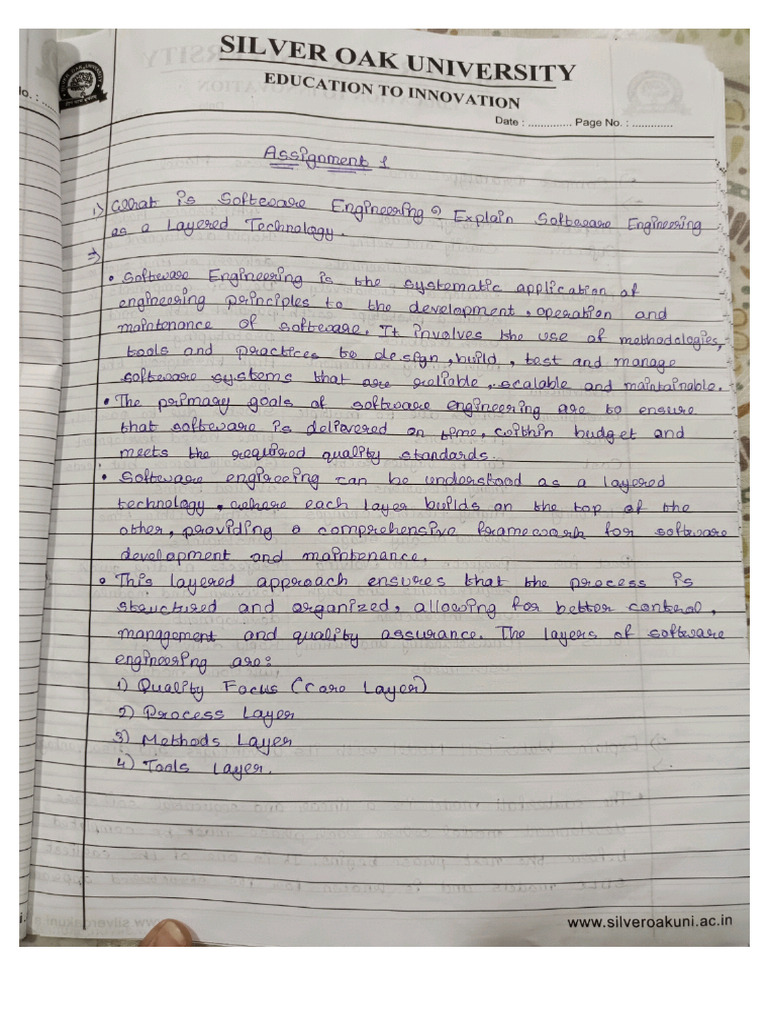 SILVER OAK UNIVERSITY
EDUCATION TO INNOVATION
Date : ............. Page No. : .............
Assignment 1
1) What is Software Engineering? Explain Software Engineering
as a Layered Technology.
⇒
• Software Engineering is the systematic application of
engineering principles to the development, operation and
maintenance of software. It involves the use of methodologies,
tools and practices to design, build, test and manage
software systems that are reliable, scalable and maintainable.
• The primary goals of software engineering are to ensure
that software is delivered on time, within budget and
meets the required quality standards.
• Software engineeing can be understood as a layered
technology, where each layer builds on the top of the
other, providing a comprehensive framework for software
development and maintenance.
• This layered approach ensures that the process is
structured and organized, allowing for better control,
management and quality assurance. The layers of software
engineering are:
1) Quality Focus (Core Layer)
2) Process Layer
3) Methods Layer
4) Tools Layer.
www.silveroakuni.ac.in